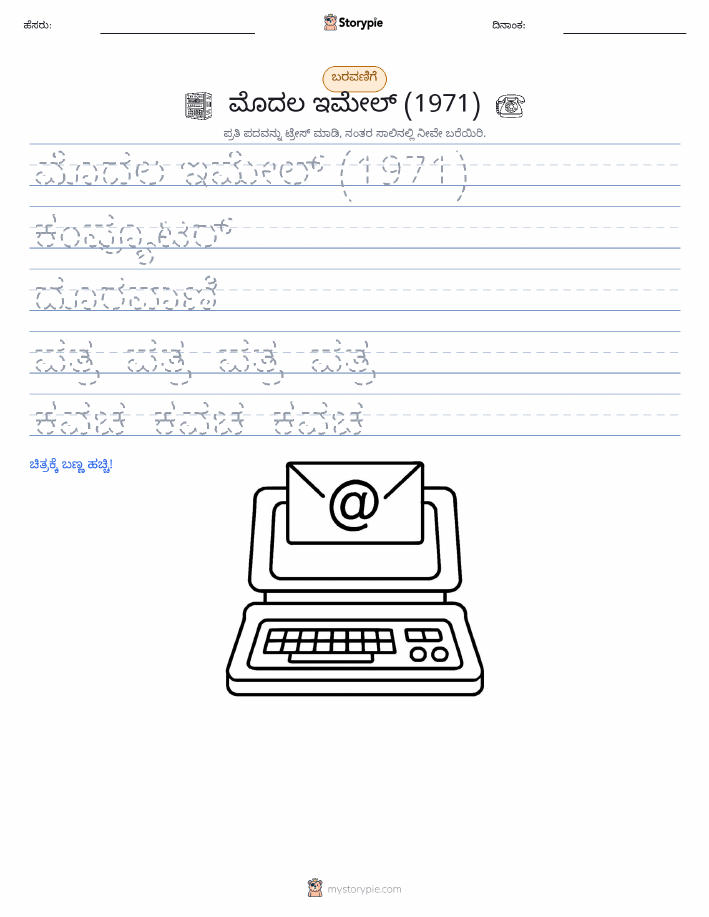 ಹೆಸರು:
Storypie
ದಿನಾಂಕ:
ಬರವಣಿಗೆ
ಮೊದಲ ಇಮೇಲ್ (1971)
ಪ್ರತಿ ಪದವನ್ನು ಟ್ರೇಸ್ ಮಾಡಿ, ನಂತರ ಸಾಲಿನಲ್ಲಿ ನೀವೇ ಬರೆಯಿರಿ.
ಮೊದಲ ಇಮೇಲ್ (1971)
ಕಂಪ್ಯೂಟರ್
ದೂರವಾಣಿ
ಪತ್ರ ಪತ್ರ ಪತ್ರ ಪತ್ರ
ಕವಚ ಕವಚ ಕವಚ
ಚಿತ್ರಕ್ಕೆ ಬಣ್ಣ ಹಚ್ಚಿ!
@
mystorypie.com